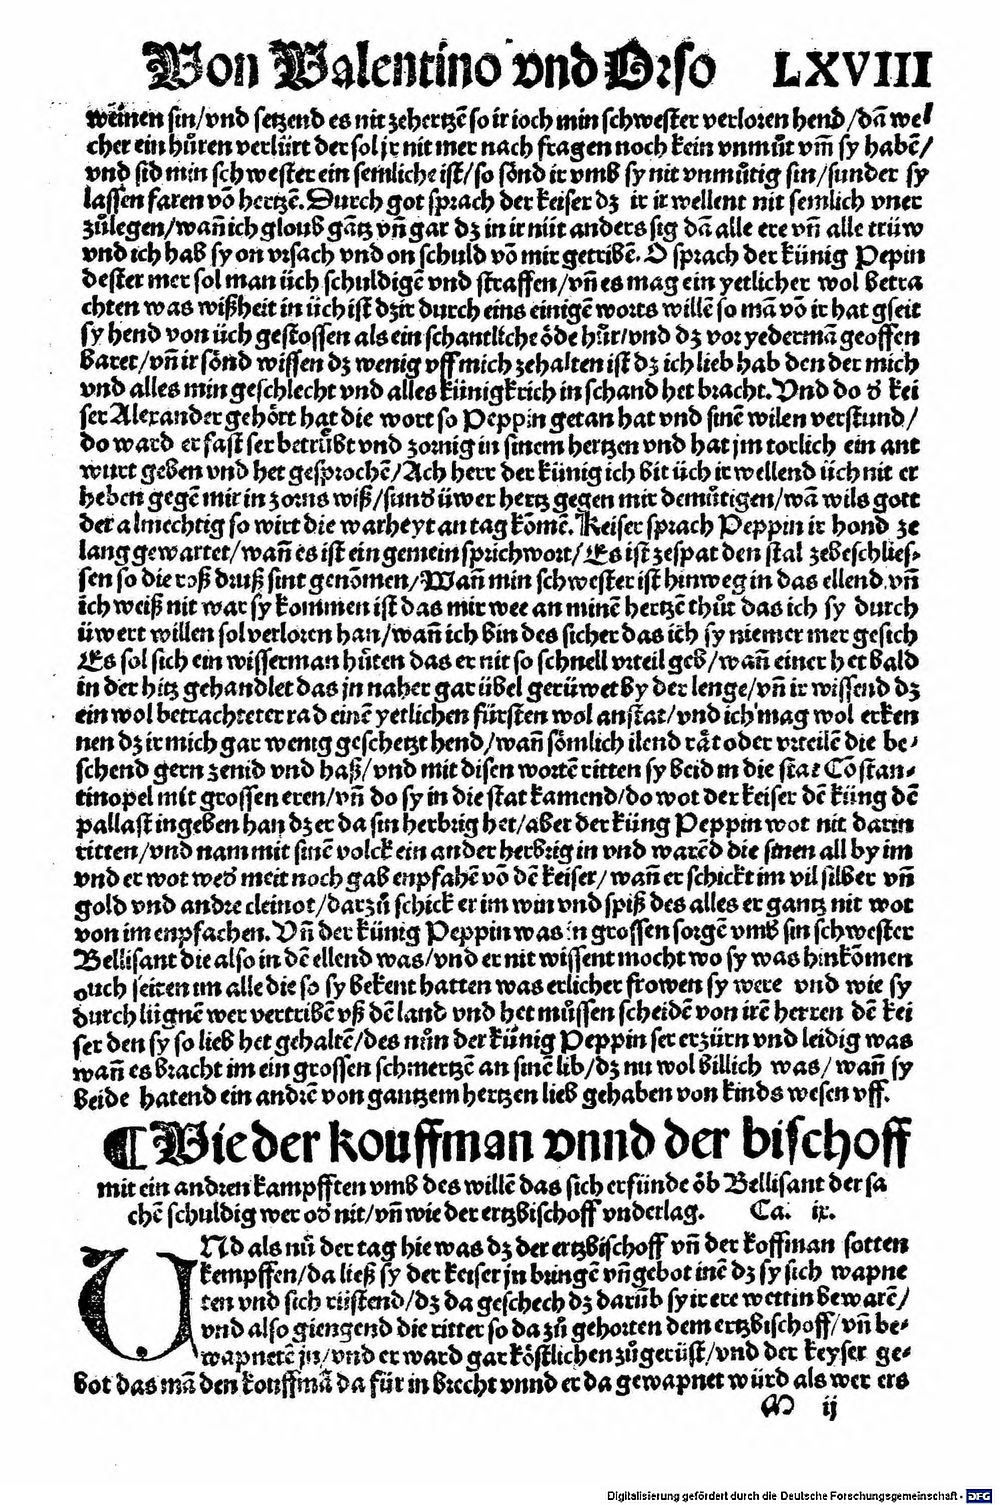 Von Valentino vnd Orso LXVIII
weinen sin/vnd setzend es nit zehertzẽ so ir ioch min schwester verloren hend/dã wel
cher ein hůren verlürt der sol jr nit mer nach fragen noch kein vnmůt vm̃ sy habẽ/
vnd sid min schwester ein semliche ist/so sõnd ir vmb sy nit vnmůtig sin/sunder sy
lassen faren võ hertzẽ. Durch got sprach der keiser dz ir ir wellent nit semlich vner
zůlegen/wañ ich gloub gãtz vñ gar dz in ir nüt anders sig dã alle ere vñ alle trüw
vnd ich hab sy on vrsach vnd on schuld võ mir getribẽ. O sprach der künig Pepin
dester mer sol man üch schuldigẽ vnd straffen/vñ es mag ein yetlicher wol betra
chten was wißheit in üch ist dz ir durch eins einigẽ worts willẽ so mã võ ir hat gseit
sy hend von üch gestossen als ein schantliche öde hůr/vnd dz vor yedermã geoffen
baret/vñ ir sõnd wissen dz wenig vff mich zehalten ist dz ich lieb hab den der mich
vnd alles min geschlecht vnd alles künigkrich in schand het bracht. Vnd do d' kei
ser Alexander gehört hat die wort so Peppin getan hat vnd sinẽ wilen verstund/
do ward er fast ser betrůbt vnd zornig in sinem hertzen vnd hat jm torlich ein ant
wurt geben vnd het gesprochẽ/Ach herr der künig ich bit üch ir wellend üch nit er
heben gegẽ mir in zorns wiß/sund' üwer hertz gegen mir demůtigen/wã wils gott
der almechtig so wirt die warheyt an tag kõmẽ. Keiser sprach Peppin ir hond ze
lang gewartet/wañ es ist ein gemein sprichwort/Es ist zespat den stal zebeschlies-
sen so die roß druß sint genõmen/Wañ min schwester ist hinweg in das ellend vñ
ich weiß nit war sy kommen ist das mir wee an minẽ hertzẽ thůt das ich sy durch
üwert willen sol verloren han/wañ ich bin des sicher das ich sy niemer mer gesich
Es sol sich ein wisserman hůten das er nit so schnell vrteil geb/wañ einer het bald
in der hitz gehandlet das jn naher gar übel gerüwet by der lenge/vñ ir wissend dz
ein wol betrachteter rad einẽ yetlichen fürsten wol anstat/vnd ich mag wol erken
nen dz ir mich gar wenig geschetzt hend/wañ sõmlich ilend rått oder vrteilẽ die be-
schend gern zenid vnd haß/vnd mit disen wortẽ ritten sy beid in die stat Cõstan-
tinopel mit grossen eren/vñ do sy in die stat kamend/do wot der keiser dẽ küng dẽ
pallast ingeben han dz er da sin herbrig het/aber der küng Peppin wot nit darin
ritten/vnd nam mit sinẽ volck ein ander herbrig in vnd warẽd die sinen all by im
vnd er wot wed' meit noch gab enpfahẽ võ dẽ keiser/wañ er schickt im vil silber vñ
gold vnd andre cleinot/darzů schick er im win vnd spiß des alles er gantz nit wot
von im enpfachen. Vñ der künig Peppin was in grossen sorgẽ vmb sin schwester
Bellisant die also in dẽ ellend was/vnd er nit wissent mocht wo sy was hinkõmen
ouch seiten im alle die so sy bekent hatten was erlicher frowen sy were vnd wie sy
durch lügnẽ wer vertribẽ vß dẽ land vnd het můssen scheidẽ von irẽ herren dẽ kei
ser den sy so lieb het gehaltẽ/des nůn der künig Peppin ser erzürn vnd leidig was
wañ es bracht im ein grossen schmertzẽ an sinẽ lib/dz nu wol billich was/wañ sy
beide hatend ein andrẽ von gantzem hertzen lieb gehaben von kinds wesen vff.
¶ Wie der kouffman vnnd der bischoff
mit ein andren kampfften vmb des willẽ das sich erfünde ôb Bellisant der sa
chẽ schuldig wer od' nit/vñ wie der ertzbischoff vnderlag. Ca. ix.
UNd als nů der tag hie was dz der ertzbischoff vñ der koffman sotten
kempffen/da ließ sy der keiser jn bringẽ vñ gebot inẽ dz sy sich wapne
ten vnd sich rüstend/dz da geschech dz darũb sy ir ere wettin bewarẽ/
vnd also giengend die ritter so da zů gehorten dem ertzbischoff/vñ be-
wapnetẽ jn/vnd er ward gar köstlichen zůgerüst/vnd der keyser ge-
bot das mã den kouffmã da für in brecht vnnd er da gewapnet würd als wer ers
M ij
Digitalisierung gefördert durch die Deutsche Forschungsgemeinschaft - DFG